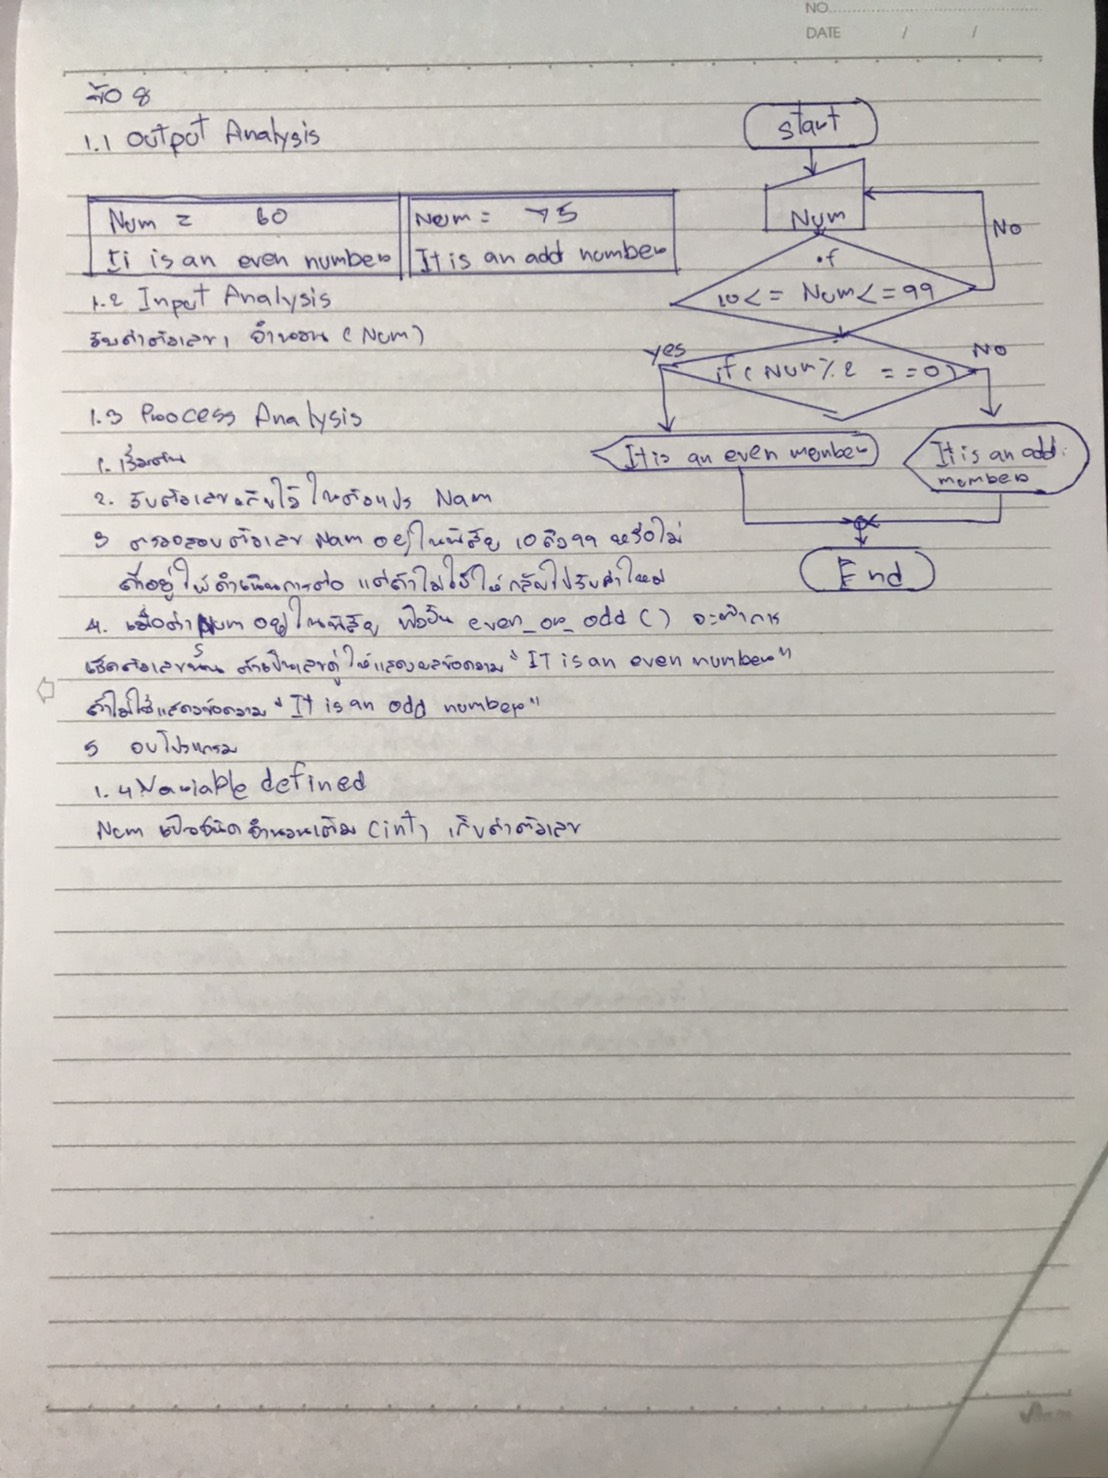 NO.
DATE / /
ข้อ 8
1.1 Output Analysis
Num = 60
Ii is an even number
Num = 75
It is an add number
1.2 Input Analysis
รับค่าตัวเลข 1 จำนวน (Num)
1.3 Process Analysis
1. เริ่มต้น
2. รับตัวเลขเก็บไว้ในตัวแปร Nam
3 ตรวจสอบตัวเลข Nam อยู่ในพิสัย 10 ถึง 99 หรือไม่
ถ้าอยู่ให้ดำเนินการต่อ แต่ถ้าไม่ใช่ให้กลับไปรับค่าใหม่
4. เมื่อค่า Num อยู่ในพิสัย ฟังชั่น even_or_odd () จะทำการ
เช็คตัวเลขนั้น ถ้าเป็นเลขคู่ให้แสดงผลข้อความ "IT is an even number"
ถ้าไม่ใช่แสดงข้อความ "It is an odd number"
5 จบโปรแกรม
1.4 Variable defined
Num เป็นชนิดจำนวนเต็ม (int) เก็บค่าตัวเลข
start
Num
No
if
10<= Num<=99
yes
No
if (Num % 2 ==0)
It is an even member
It is an add
member
End